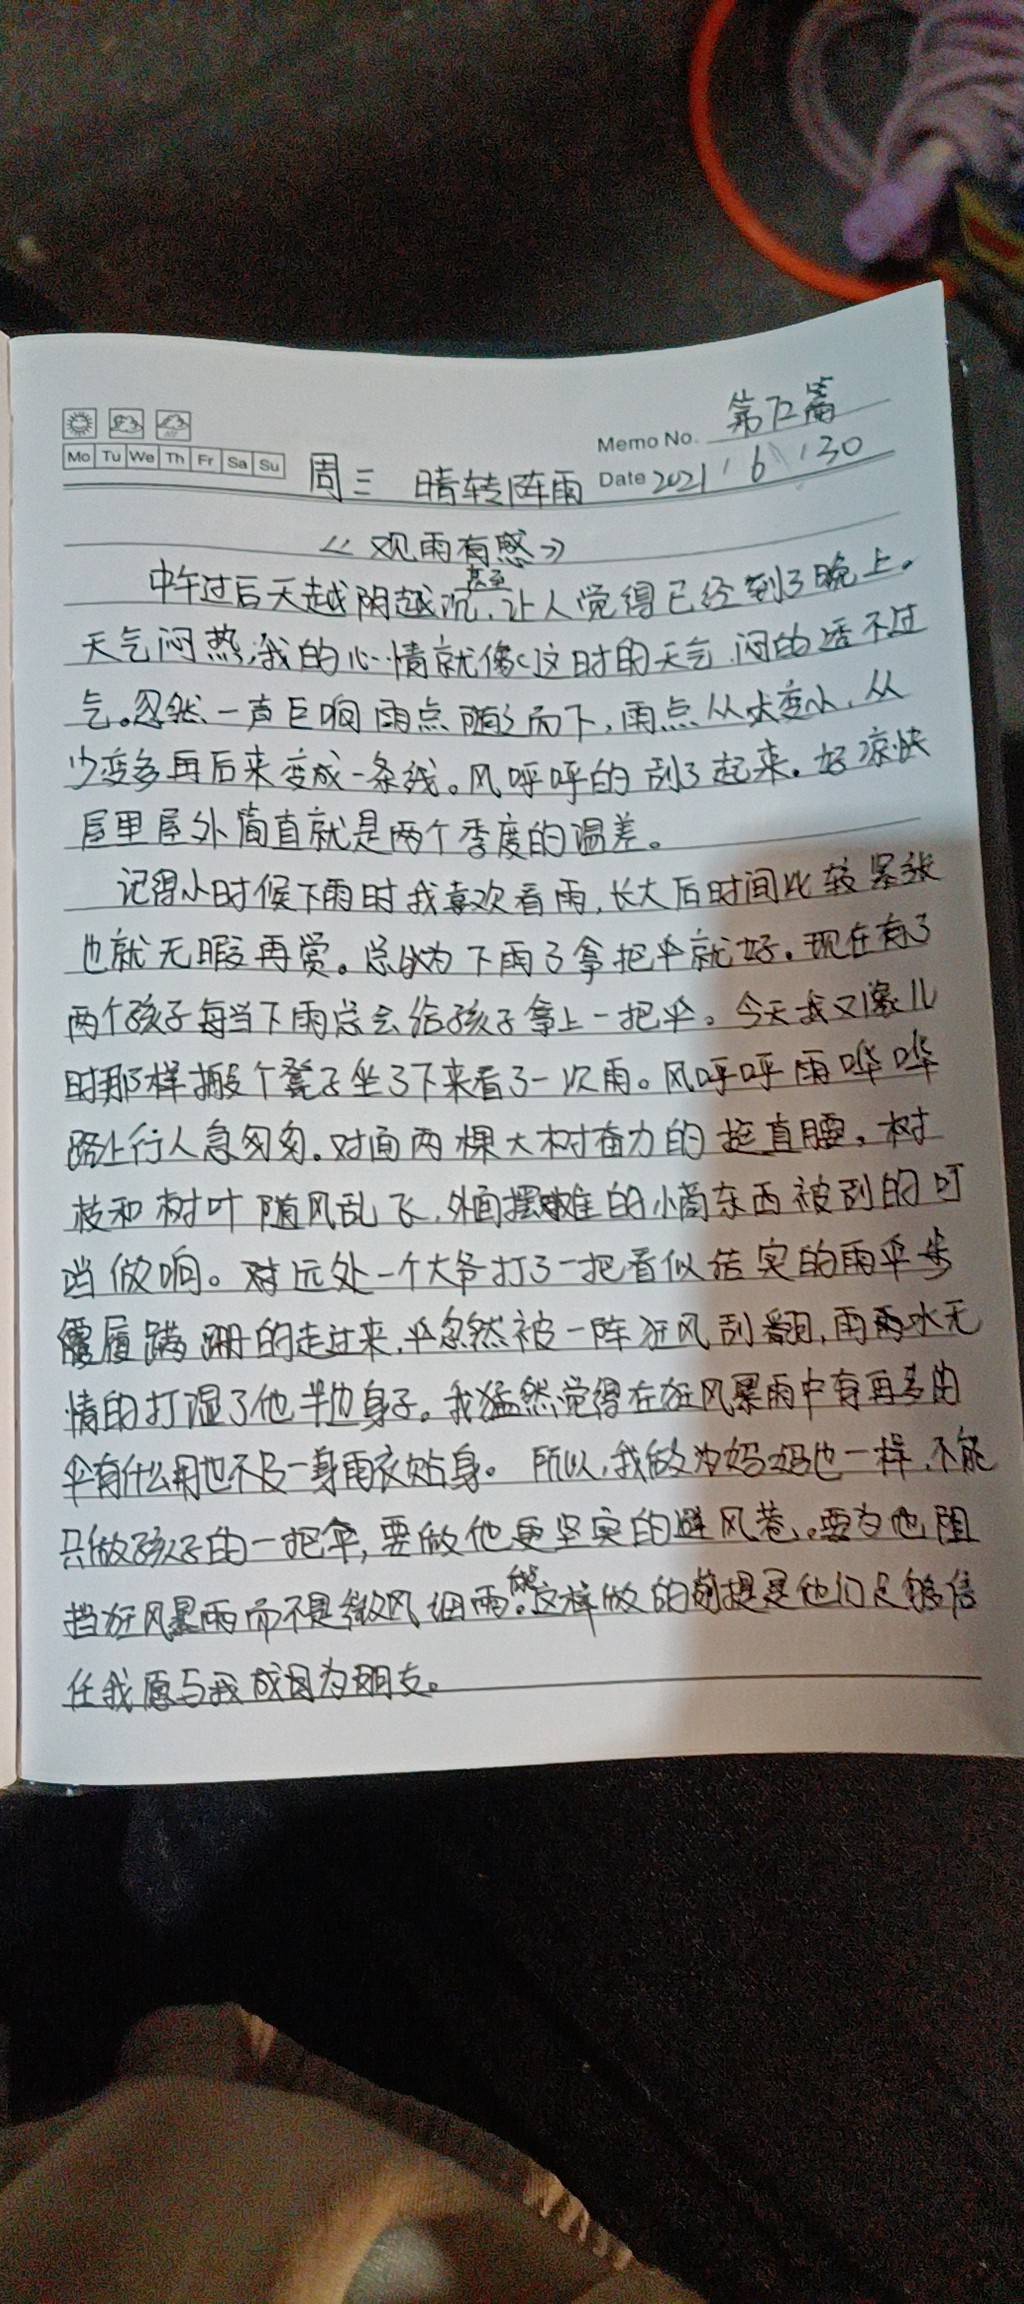 Memo No. 第72篇
Mo Tu We Th Fr Sa Su
周三 晴转阵雨 Date 2021 / 6 / 30
《观雨有感》
中午过后天越阴越沉,甚至让人觉得已经到了晚上。
天气闷热,我的心情就像这时的天气闷的透不过
气。忽然一声巨响雨点随之而下,雨点从大变小,从
少变多再后来变成一条线。风呼呼的刮了起来。好凉快
屋里屋外简直就是两个季度的温差。
记得小时候下雨时我喜欢看雨,长大后时间比较紧张
也就无暇再赏。总以为下雨了拿把伞就好。现在有了
两个孩子每当下雨总会给孩子拿上一把伞。今天我又像儿
时那样搬个凳子坐了下来看了一次雨。风呼呼雨哗哗
路上行人急匆匆。对面两棵大树奋力的挺直腰,树
枝和树叶随风乱飞,外面摆摊的小商东西被刮的叮
当做响。远处一个大爷打了一把看似结实的雨伞步
履蹒跚的走过来,伞忽然被一阵狂风刮翻,雨水无
情的打湿了他半边身子。我猛然觉得在狂风暴雨中有再多的
伞有什么用也不及一身雨衣贴身。所以,我做为妈妈也一样,不能
只做孩子的一把伞,要做他更坚实的避风巷。要为他阻
挡狂风暴雨而不是微风细雨。这样做的前提是他们足够信
任我愿与我成为朋友。